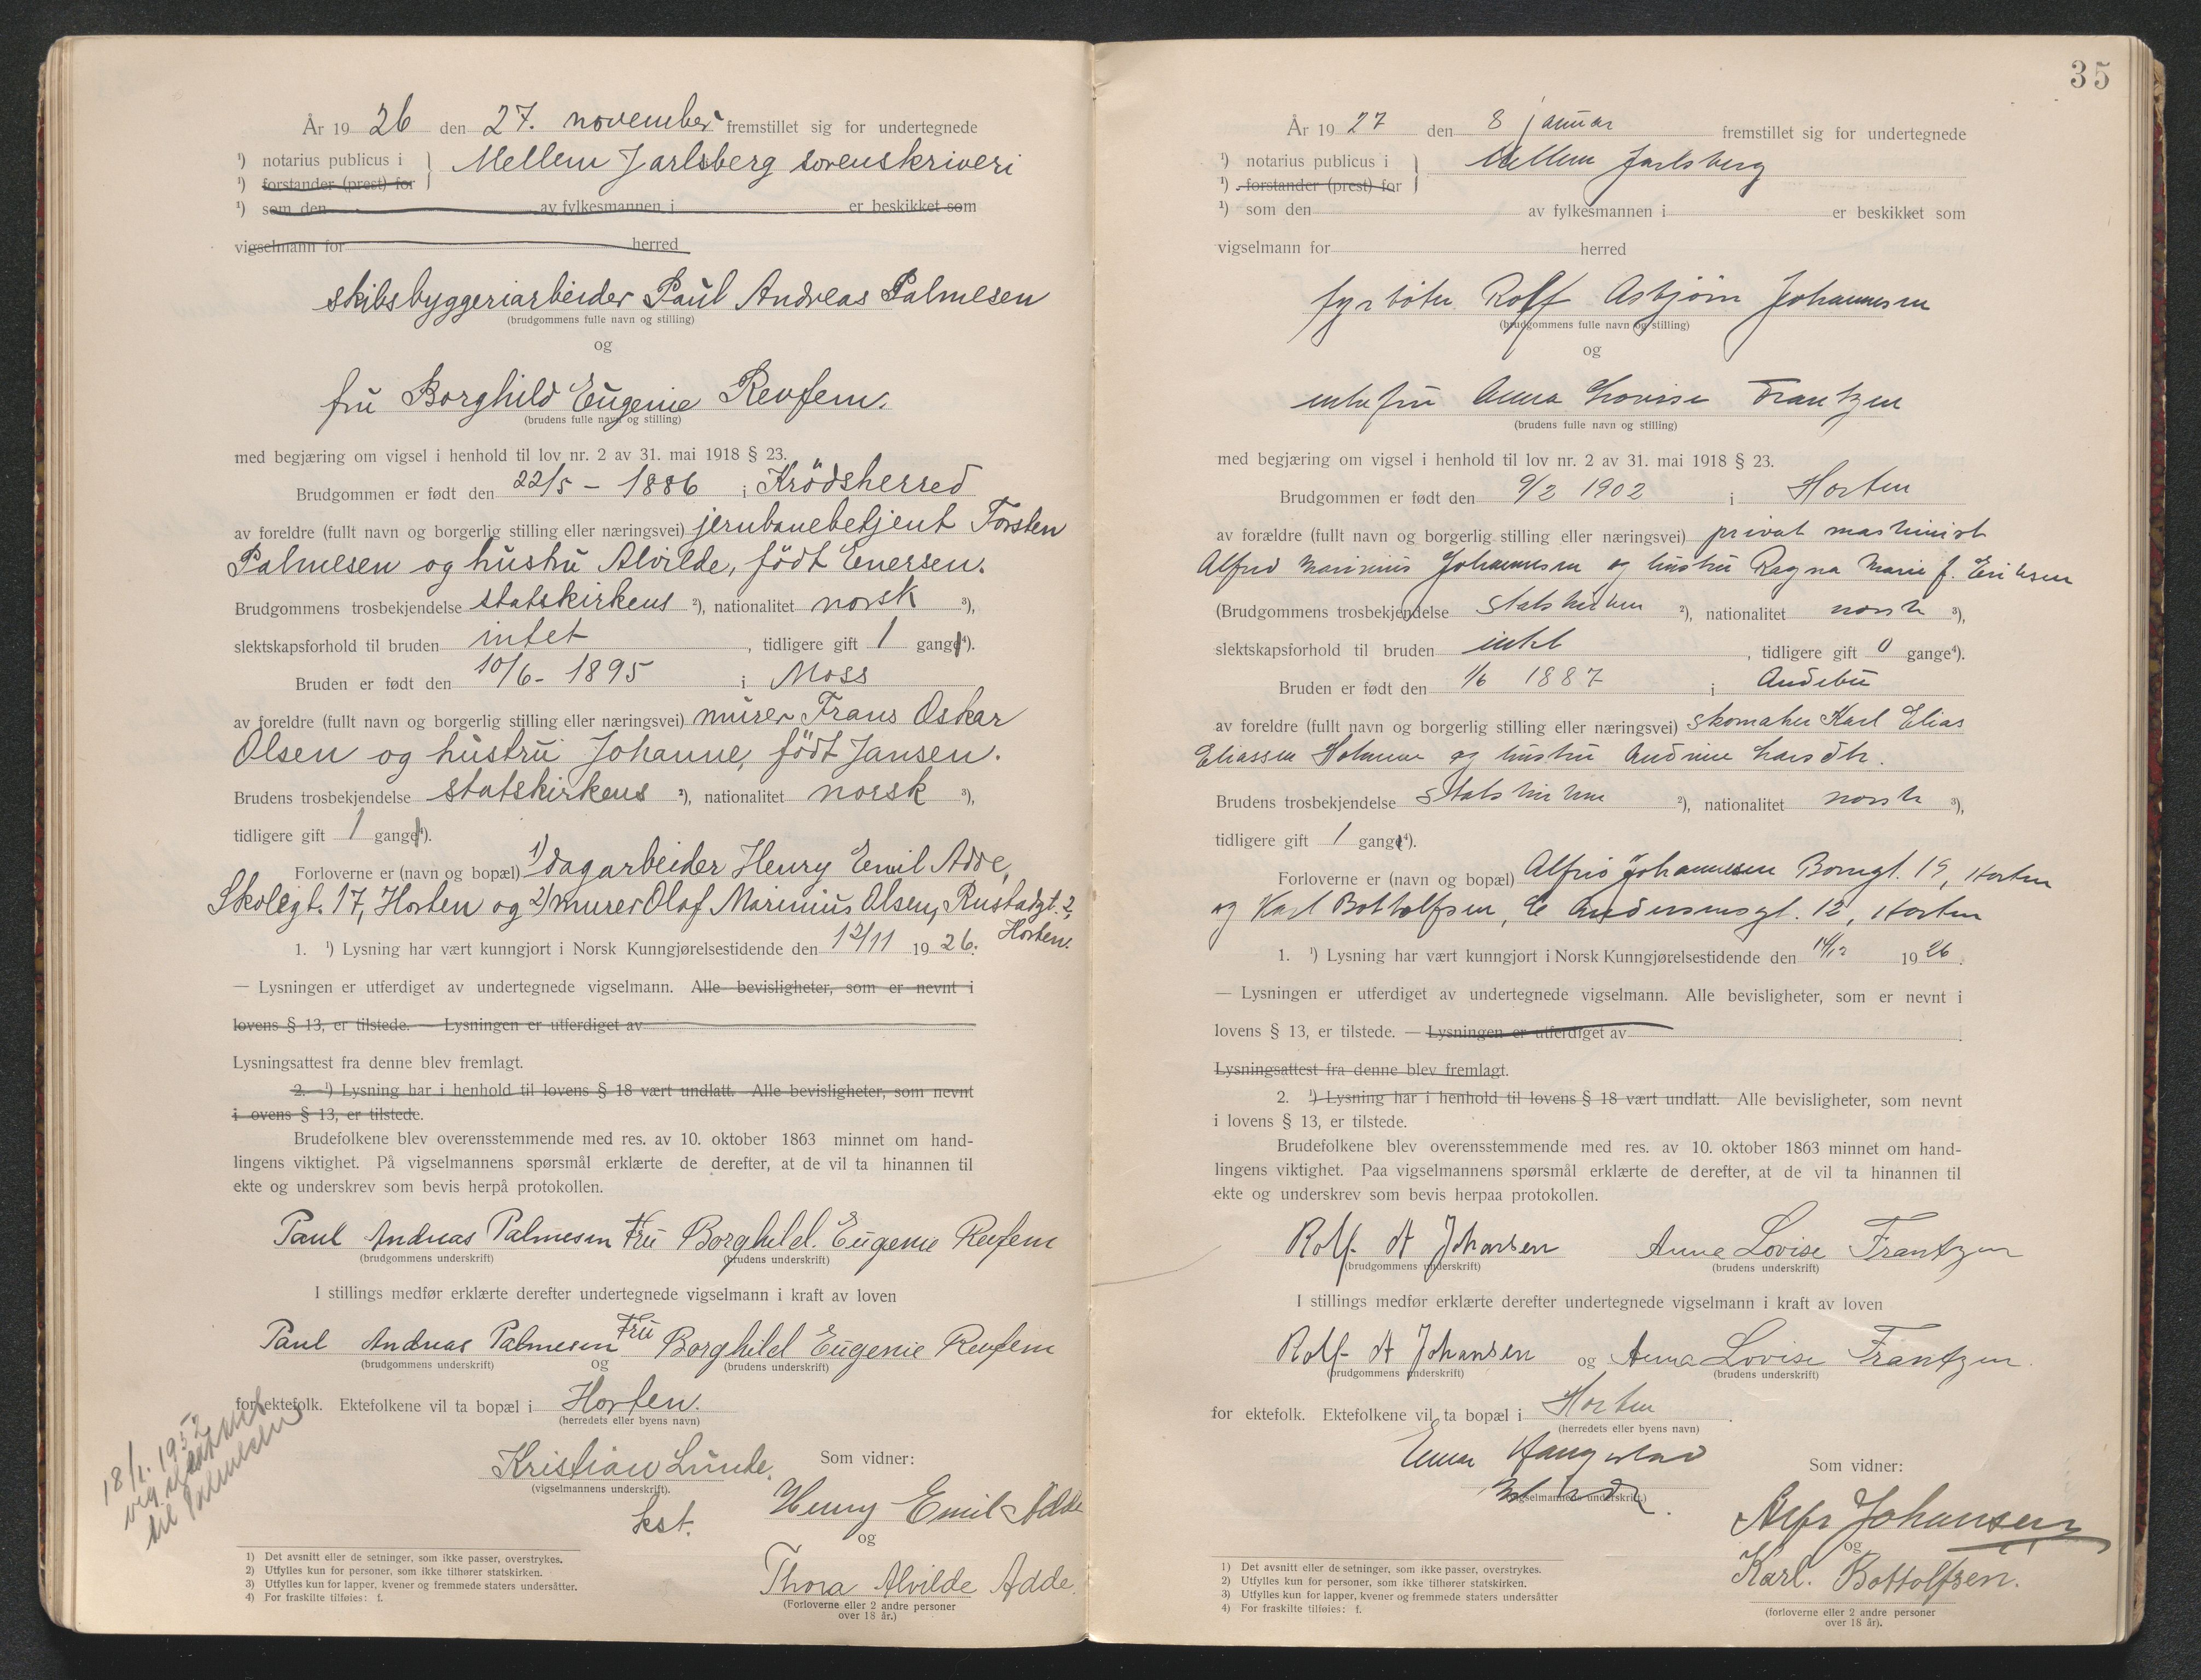 År 1926 den 27. november fremstillet sig for undertegnede
¹) notarius publicus i } Mellem Jarlsberg sorenskriveri
¹) forstander (prest) for
¹) som den av fylkesmannen i er beskikket som
vigselmann for herred
skibsbyggeriarbeider Paul Andreas Palmesen
(brudgommens fulle navn og stilling)
og
fru Borghild Eugenie Revfem.
(brudens fulle navn og stilling)
med begjæring om vigsel i henhold til lov nr. 2 av 31. mai 1918 § 23.
Brudgommen er født den 22/5 - 1886 i Krödsherred
av foreldre (fullt navn og borgerlig stilling eller næringsvei) jernbanebetjent Torsten
Palmesen og hustru Alvilde, födt Enersen.
Brudgommens trosbekjendelse statskirkens ²), nationalitet norsk ³),
slektskapsforhold til bruden intet, tidligere gift 1 gange⁴).
Bruden er født den 10/6 - 1895 i Moss
av foreldre (fullt navn og borgerlig stilling eller næringsvei) murer Frans Oskar
Olsen og hustru Johanne, födt Jansen.
Brudens trosbekjendelse statskirkens ²), nationalitet norsk ³),
tidligere gift 1 gange⁴).
Forloverne er (navn og bopæl) 1) dagarbeider Henry Emil Adde,
Skolegt. 17, Horten og 2) murer Olaf Marinius Olsen, Rustadgt. 2,
Horten.
1. ¹) Lysning har vært kunngjort i Norsk Kunngjørelsestidende den 12/11 1926.
— Lysningen er utferdiget av undertegnede vigselmann. Alle bevisligheter, som er nevnt i
lovens § 13, er tilstede. — Lysningen er utferdiget av
Lysningsattest fra denne blev fremlagt.
2. ¹) Lysning har i henhold til lovens § 18 vært undlatt. Alle bevisligheter, som nevnt
i ovens § 13, er tilstede.
Brudefolkene blev overensstemmende med res. av 10. oktober 1863 minnet om hand-
lingens viktighet. På vigselmannens spørsmål erklærte de derefter, at de vil ta hinannen til
ekte og underskrev som bevis herpå protokollen.
Paul Andreas Palmesen Fru Borghild. Eugenie Revfem
(brudgommens underskrift) (brudens underskrift)
I stillings medfør erklærte derefter undertegnede vigselmann i kraft av loven
Paul Andreas Palmesen og Fru Borghild Eugenie Revfem
(brudgommens underskrift) (brudens underskrift)
for ektefolk. Ektefolkene vil ta bopæl i Horten.
(herredets eller byens navn)
18/1. 1952
vig.attest
til Palmesen
Kristian Lunde.
(vigselmannens underskrift).
kst.
Som vidner:
Henry Emil Adde
og
Thora Alvilde Adde.
(Forloverne eller 2 andre personer
over 18 år.)
1) Det avsnitt eller de setninger, som ikke passer, overstrykes.
2) Utfylles kun for personer, som ikke tilhører statskirken.
3) Utfylles kun for lapper, kvener og fremmede staters undersåtter.
4) For fraskilte tilføies: f.
35
År 1927 den 8 januar fremstillet sig for undertegnede
¹) notarius publicus i } Mellem Jarlsberg
¹) forstander (prest) for
¹) som den av fylkesmannen i er beskikket som
vigselmann for herred
fyrböter Rolf Asbjörn Johannesen
(brudgommens fulle navn og stilling)
og
enkefru Anna Lovise Frantzen
(brudens fulle navn og stilling)
med begjæring om vigsel i henhold til lov nr. 2 av 31. mai 1918 § 23.
Brudgommen er født den 9/2 1902 i Horten
av forældre (fullt navn og borgerlig stilling eller næringsvei) privat maskinist
Alfred Marinius Johannesen og hustru Ragna Marie f. Eriksen
(Brudgommens trosbekjendelse statskirken ²), nationalitet norsk ³),
slektskapsforhold til bruden intet, tidligere gift 0 gange⁴).
Bruden er født den 1/6 1887 i Andebu
av foreldre (fullt navn og borgerlig stilling eller næringsvei) skomaker Karl Elias
Eliassen Holmen og hustru Andrine Larsdtr.
Brudens trosbekjendelse statskirken ²), nationalitet norsk ³),
tidligere gift 1 gange⁴).
Forloverne er (navn og bopæl) Alfred Johannesen Bomgt. 19, Horten
og Karl Bottolfsen, C Andersensgt. 12, Horten
1. ¹) Lysning har vært kunngjort i Norsk Kunngjørelsestidende den 14/12 1926.
— Lysningen er utferdiget av undertegnede vigselmann. Alle bevisligheter, som er nevnt i
lovens § 13, er tilstede. — Lysningen er utferdiget av
Lysningsattest fra denne blev fremlagt.
2. ¹) Lysning har i henhold til lovens § 18 vært undlatt. Alle bevisligheter, som nevnt
i lovens § 13, er tilstede.
Brudefolkene blev overensstemmende med res. av 10. oktober 1863 minnet om hand-
lingens viktighet. Paa vigselmannens spørsmål erklærte de derefter, at de vil ta hinannen til
ekte og underskrev som bevis herpaa protokollen.
Rolf A Johansen Anna Lovise Frantzen
(brudgommens underskrift) (brudens underskrift)
I stillings medfør erklærte derefter undertegnede vigselmann i kraft av loven
Rolf A Johansen og Anna Lovise Frantzen.
(brudgommens underskrift) (brudens underskrift)
for ektefolk. Ektefolkene vil ta bopæl i Horten.
(herredets eller byens navn)
(vigselmannens underskrift.)
Som vidner:
Alfr Johansen
og
Karl. Bottolfsen.
(forloverne eller 2 andre personer
over 18 år).
1) Det avsnitt eller de setninger, som ikke passer, overstrykes.
2) Utfylles kun for personer, som ikke tilhører statskirken.
3) Utfylles kun for lapper, kvener og fremmede staters undersåtter
4) For fraskilte tilføies: f.